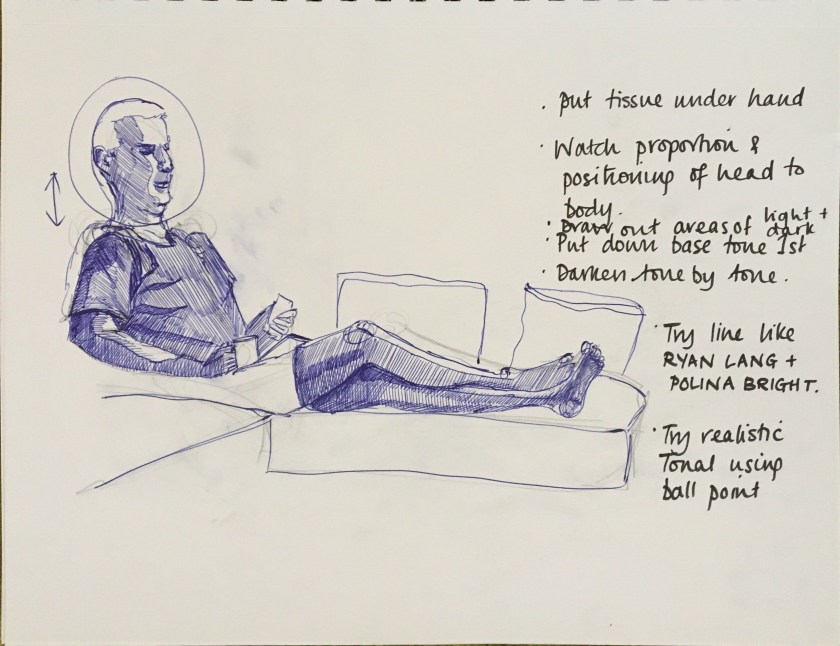 . put tissue under hand
· Watch proportion &
positioning of head to
body.
· Draw out areas of light +
dark
· Put down base tone 1st
· Darken tone by tone.
· Try line like
RYAN LANG +
POLINA BRIGHT.
· Try realistic
Tonal using
ball point